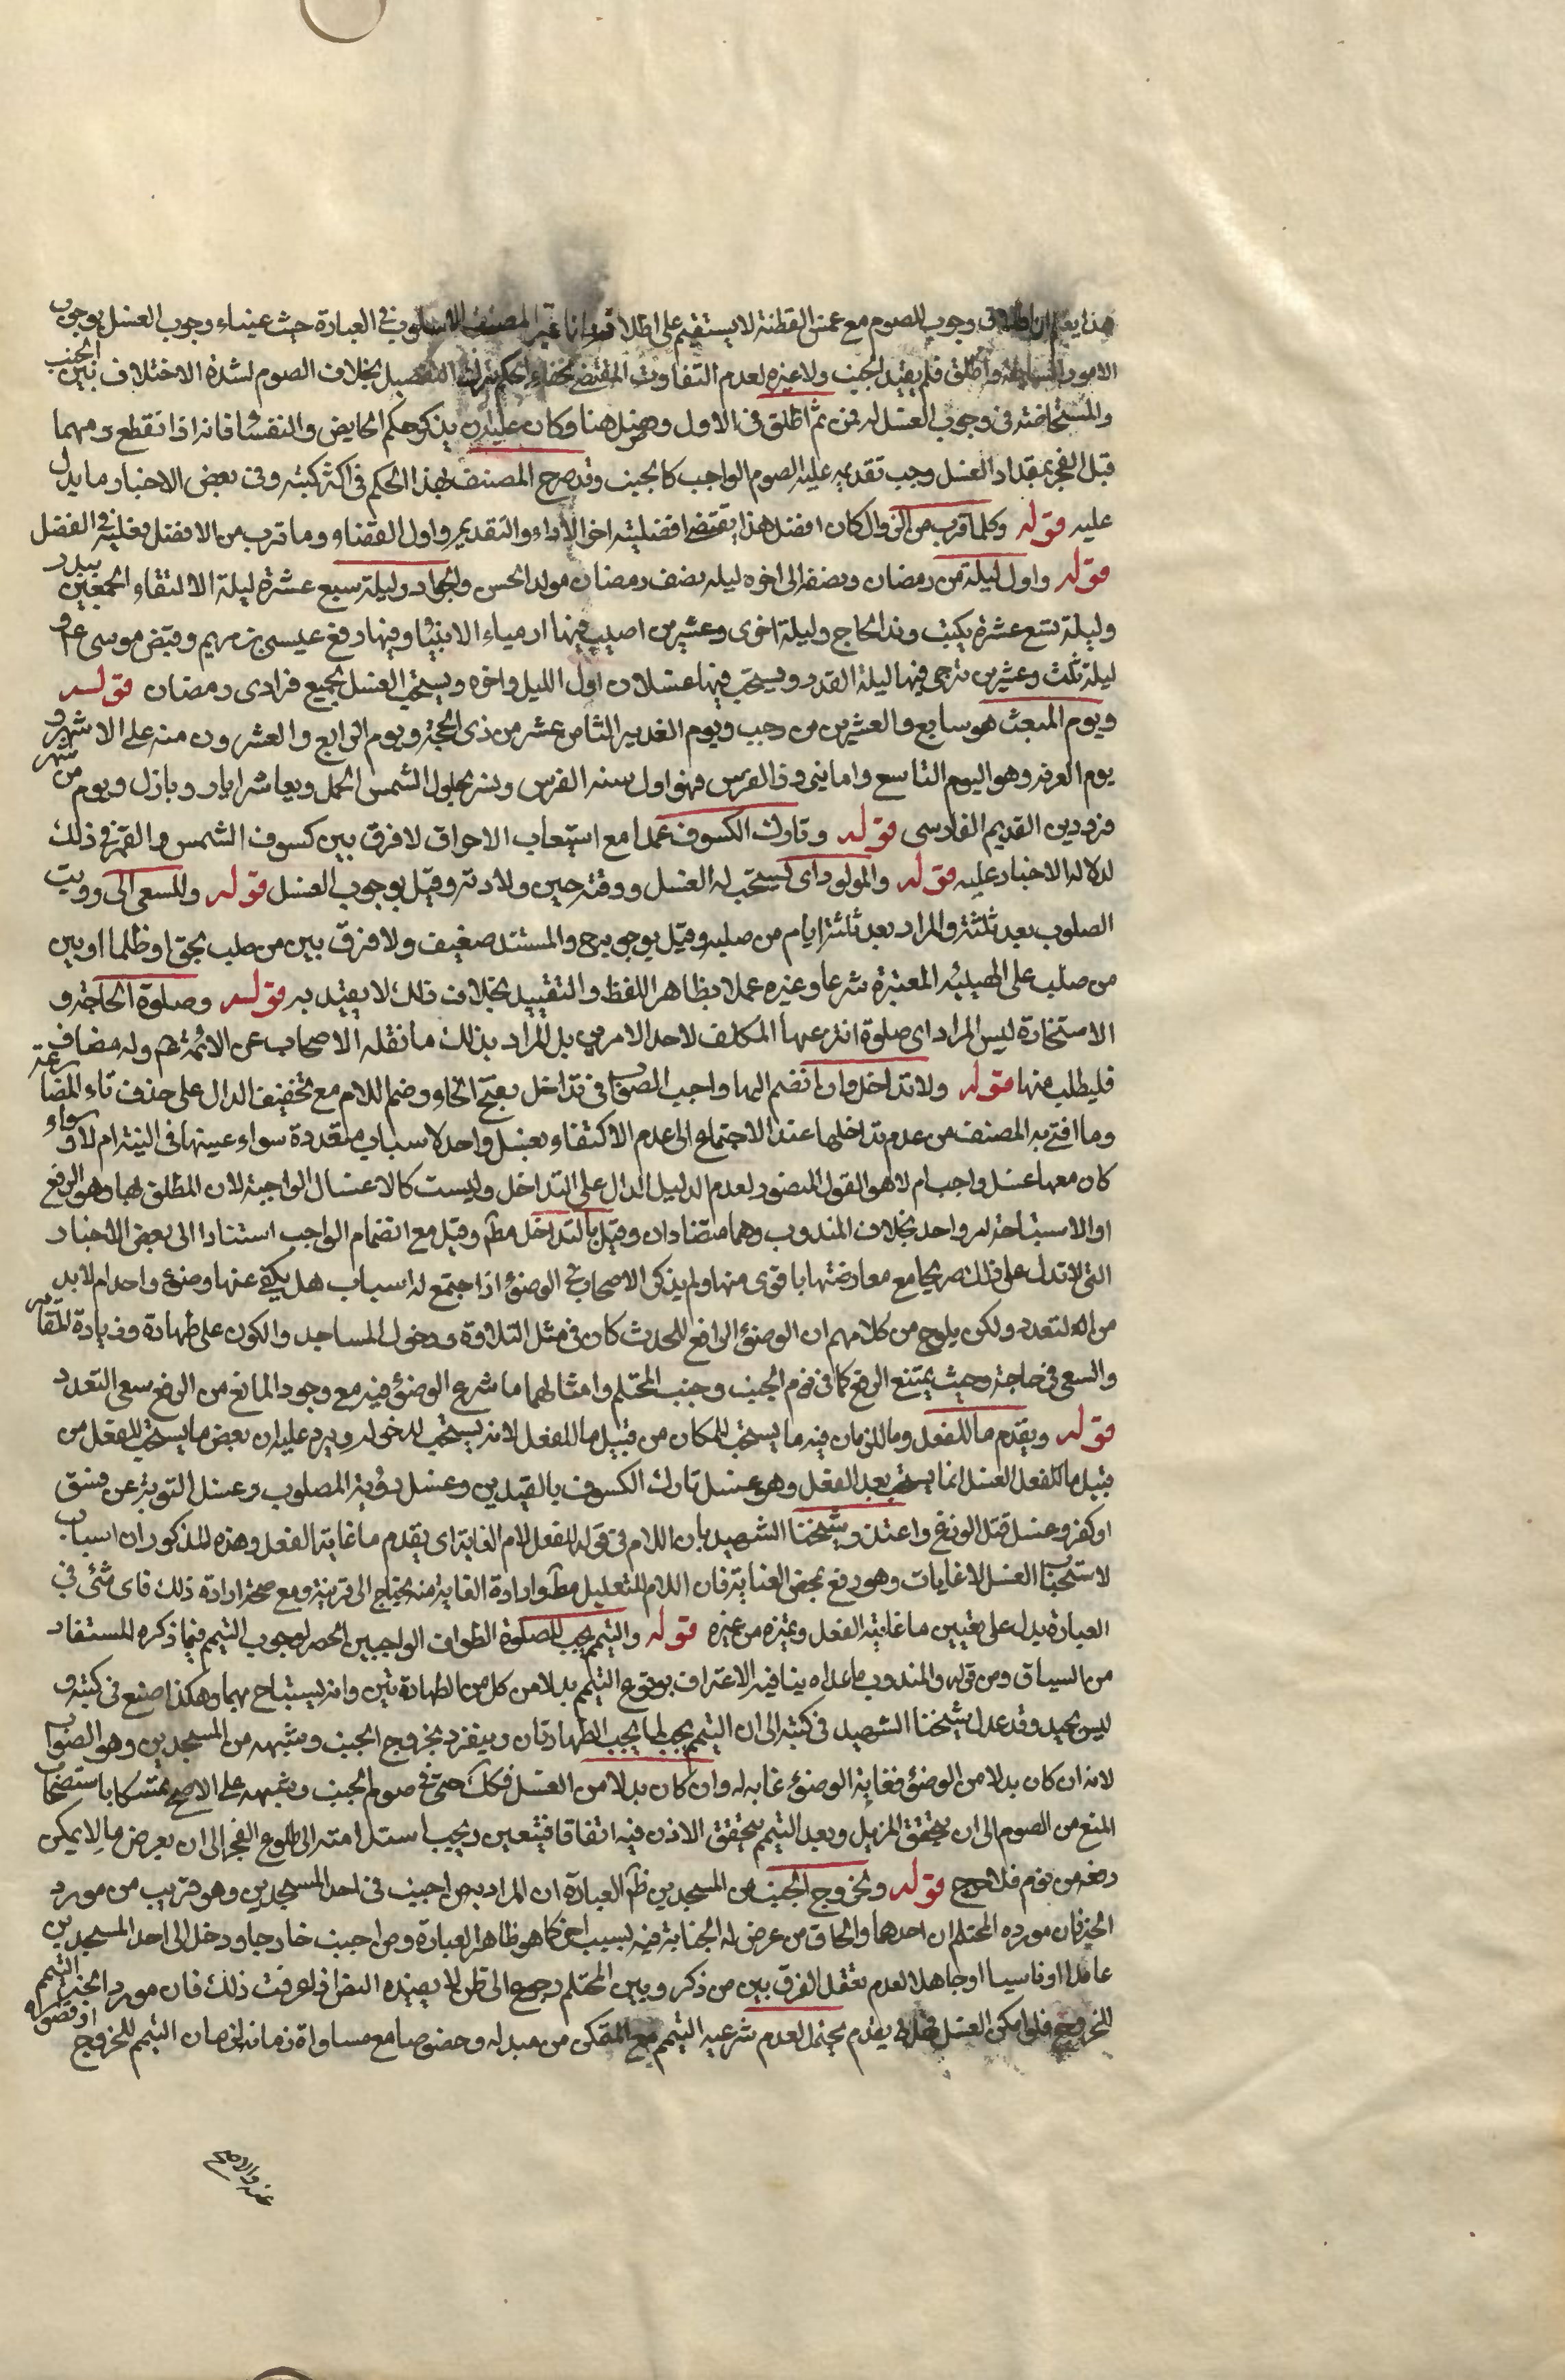 هذا يعلم ان اطلاق وجوب الصوم مع غمس القطنة لا يستقيم على اطلاقه وانما غير المصنف الاسلوب في العبارة حيث غياء وجوب الغسل بوجوب
الامور الثلاثة واطلق فلم يقيد بالجنب ولا غيره لعدم التفاوت المقتضي لخفاء الحكم بترك التفصيل بخلاف الصوم لشدة الاختلاف بين الجنب
والمستحاضة في وجوب الغسل له فمن ثم اطلق في الاول وفصل هنا وكان عليه ان يذكر حكم الحايض والنفساء فانه اذا انقطع دمهما
قبل الفجر بمقدار الغسل وجب تقديمه عليه للصوم الواجب كالجنب وقد صرح المصنف بهذا الحكم في اكثر كتبه وفي بعض الاخبار ما يدل
عليه قوله وكلما قرب من الزوال كان افضل هذا يقتضي افضلية اخر الاداء والتقديم واول القضاء وما قرب من الافضل يغلبه في الفضل
قوله واول ليلة من رمضان ونصفه الى اخره ليلة نصف رمضان مولد الحسن والجواد وليلة سبع عشرة ليلة الالتقاء الجمعين ببدر
وليلة تسع عشرة يكتب وفد الحاج وليلة احدى وعشرين اصيب فيها اوصياء الانبياء وفيها رفع عيسى بن مريم وقبض موسى ع و
ليلة ثلث وعشرين ترجى فيها ليلة القدر ويستحب فيها غسلان اول الليل واخره ويستحب الغسل بجميع فرادى رمضان قوله
ويوم المبعث هو سابع والعشرين من رجب ويوم الغدير الثامن عشر من ذي الحجة ويوم الرابع والعشرون منه على الاشهر و
يوم العرفة وهو اليوم التاسع واما نيروز الفرس فهو اول سنة الفرس وفسر بحلول الشمس الحمل وبعاشر ايار وباول يوم من شهر
فرودين القديم الفارسي قوله وتارك الكسوف عمدا مع استيعاب الاحراق لا فرق بين كسوف الشمس والقمر في ذلك
لدلالة الاخبار عليه قوله والمولود اي يستحب له الغسل ووقته حين ولادته وقيل بوجوب الغسل قوله والمسعى الى رويت
المصلوب بعد ثلثة والمراد بعد ثلثة ايام من صلبه وقيل بوجوبه ح والمستند ضعيف ولا فرق بين من صلب بحق او ظلما او بين
من صلب على الهيئة المعتبرة شرعا وغيره عملا بظاهر اللفظ والتقييد بخلاف ذلك لا يعتد به قوله وصلوة الحاجة و
الاستخارة ليس المراد اي صلوة اقترعها المكلف لاحد الامرين بل المراد بذلك ما نقله الاصحاب عن الائمة عم وله مضاف
فليطلب منها قوله ولا تداخل وان انضم اليها واجب الصواب في تداخل بفتح الخاء وضم اللام مع تخفيف الدال على حذف تاء المضارعة
وما افتى به المصنف من عدم تداخلها عند الاجتماع الى عدم الاكتفاء بغسل واحد لاسباب متعددة سواء عينها في النية ام لا وسواء
كان معها غسل واجب ام لا هو القول المنصور لعدم الدليل الدال على التداخل وليست كالاغسال الواجبة لان المطلق لها وهو الرفع
او الاستباحة امر واحد بخلاف المندوب وهما متضادان وقيل بالتداخل مطلقا وقيل مع انضمام الواجب استنادا الى بعض الاخبار
التي لا تدل على ذلك صريحا مع معارضتها باقوى منها ولم يذكر الاصحاب في الوضوء اذا اجتمع له اسباب هل يكفي عنها وضوء واحد ام لا بد
من التعدد ولكن يلوح من كلامهم ان الوضوء الرافع للحدث كان في مثل التلاوة ودخول المساجد والكون على طهارة وزيارة المقابر
والسعي في حاجة وحيث يمتنع الرفع كما في نوم الجنب وجنب المحتلم وامثالهما ما شرع الوضوء فيه مع وجود المانع من الرفع سعى التعدد
قوله ويقدم ما للفعل وما للزمان فيه ما يستحب للمكان من قبيل ما للفعل لانه يستحب لدخوله ويرد عليه ان بعض ما يستحب للفعل من
قبيل ما للفعل الغسل انما يستحب بعد الفعل وهو غسل تارك الكسوف بالقيدين وغسل رؤية المصلوب وغسل التوبة عن فسق
او كفر وغسل قتل الوزغ واعتذر شيخنا الشهيد بان اللام في قوله للفعل لام الغاية اي يقدم ما غاية الفعل وهذه المذكوران اسباب
لاستحباب الغسل لا غايات وهو رفع بمحض العناية فان اللام للتعليل مطلقا وارادة الغاية منه يحتاج الى قرينة ومع صحة ارادة ذلك فاي شيء في
العبارة يدل على تعيين ما غايته الفعل وتميزه من غيره قوله والتيمم يجب للصلوة الطواف الواجبين الحصر لوجوب التيمم فيما ذكره المستفاد
من السياق ومن قوله والمندوب ما عداه ينافيه الاعتراف بوقوع التيمم بدلا من كل من الطهارتين وانه يستباح بهما وهكذا صنع في كتبه و
ليس بجيد وقد عدل شيخنا الشهيد في كتبه الى ان التيمم يجب لما يجب الطهارتان وينفرد بخروج الجنب وشبهه من المسجدين وهو الصواب
لانه ان كان بدلا من الوضوء فغاية الوضوء غاية له وان كان بدلا من الغسل فكك حتى في صوم الجنب وشبهه على الاصح تمسكا باستصحاب
المنع من الصوم الى ان يتحقق المزيل وبعد التيمم يتحقق الاذن فيه اتفاقا فيتعين ويجب استدامته الى طلوع الفجر الى ان يعرض ما لا يمكن
دفعه من نوم فلا حرج قوله وبخروج الجنب من المسجدين ظاهر العبارة ان المراد بمن اجنب في احد المسجدين وهو قريب من مورد
الخبر فان مورده المحتلم ان احدهما والحاق من عرض له الجنابة فيه بسبب اخر كما هو ظاهر العبارة ومن اجنب خارجا ودخل الى احد المسجدين
عامدا او ناسيا او جاهلا لعدم تعقل الفرق بين من ذكر وبين المحتلم رجوع الى ظن لا يفيده النص اذا عرفت ذلك فان مورد الخبر التيمم
للخروج فلو امكن الغسل يقدم يحتمل لعدم شرعية التيمم مع التمكن من مبدله وخصوصا مع مساواة زمانه لزمان التيمم للخروج او قصوره